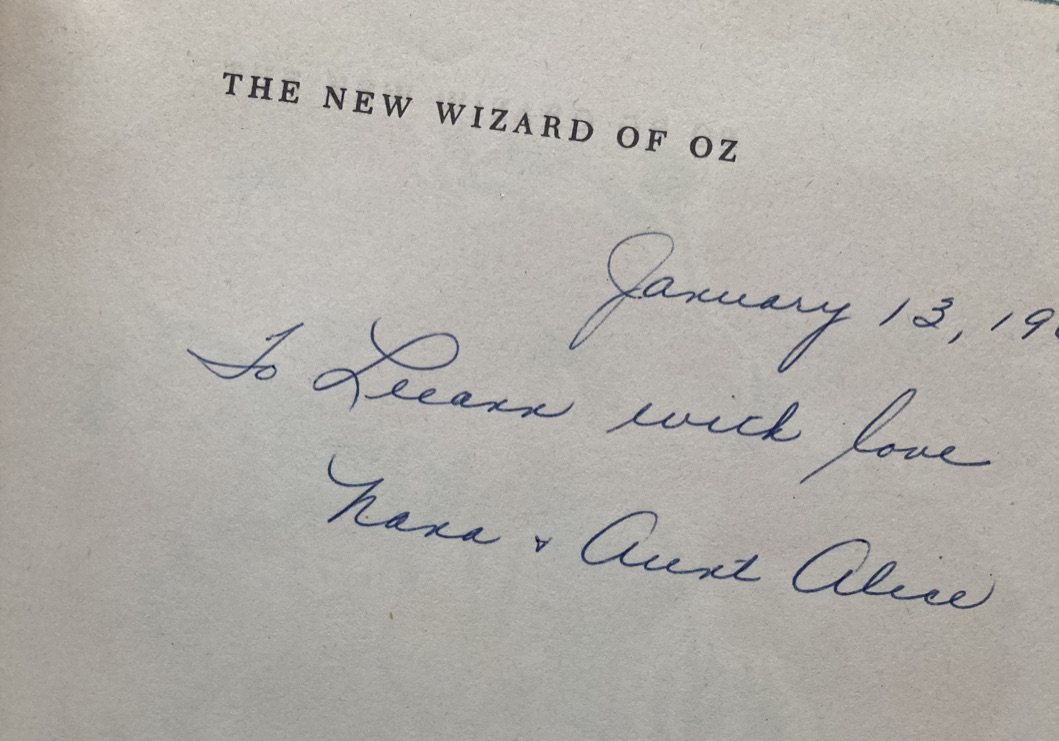 THE NEW WIZARD OF OZ
January 13, 19
To Leeann with love
Nana & Aunt Alice